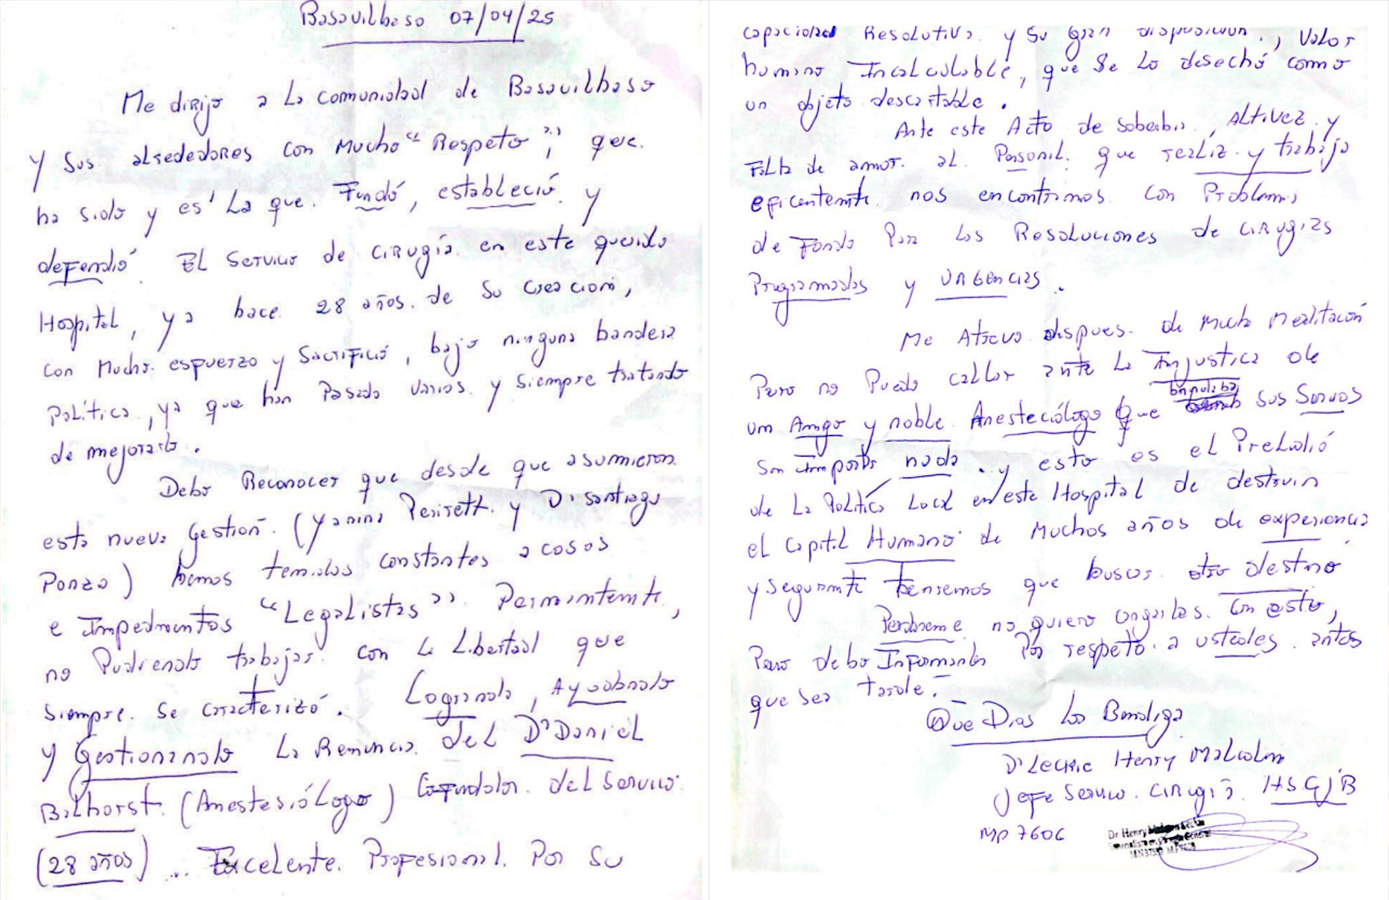 Basavilbaso 07/04/25
Me dirijo a la comunidad de Basavilbaso
y sus alrededores con Mucho "Respeto", que
ha sido y es la que Fundó, estableció y
defendió El Servicio de cirugía en este querido
Hospital, ya hace 28 años de su creación,
con Mucho esfuerzo y Sacrificio, bajo ninguna bandera
Política, ya que han Pasado varios y siempre tratando
de mejorarlo.
Debo Reconocer que desde que asumieron
esta nueva Gestión. (Yanina Perisett. y Di Santiago
Ponza) hemos tenidos constantes acosos
e Impedimentos "Legalistas" Permanente,
no Pudiendo trabajar con la Libertad que
siempre se caracterizó. Logrando, Ayudando
y Gestionando La Renuncia del Dr Daniel
Bilhorst. (Anestesiólogo) Cofundador del Servicio
(28 años) ... Excelente Profesional. Por Su
capacidad Resolutiva y su gran disposición, valor
humano Incalculable, que se lo desechó como
un objeto descartable.
Ante este Acto de Soberbia, Altivez y
Falta de amor al Personal que realiza y trabaja
eficentemente nos encontramos con Problemas
de Fondo Para las Resoluciones de cirugías
Programadas y URGENCIAS.
Me Atrevo despues de mucha Meditación
Pero no Puedo callar ante la Injusticia de
un Amigo y noble Anesteciólogo que sus Servos
Son Importa nada. y esto es el Preludió
de La Política Local en este Hospital de destruir
el capital Humano de Muchos años de experiencia
y seguramente tenremos que buscar otro destino
Perdoneme no quiero ongarlos con esto,
Pero debo Informarles Por respeto a ustedes antes
que sea tarde.
Que Dios los Bendiga
Dr Leckie Henry Malcolm
Jefe Servicio Cirugía HSGJB
MP 7606
Dr Henry